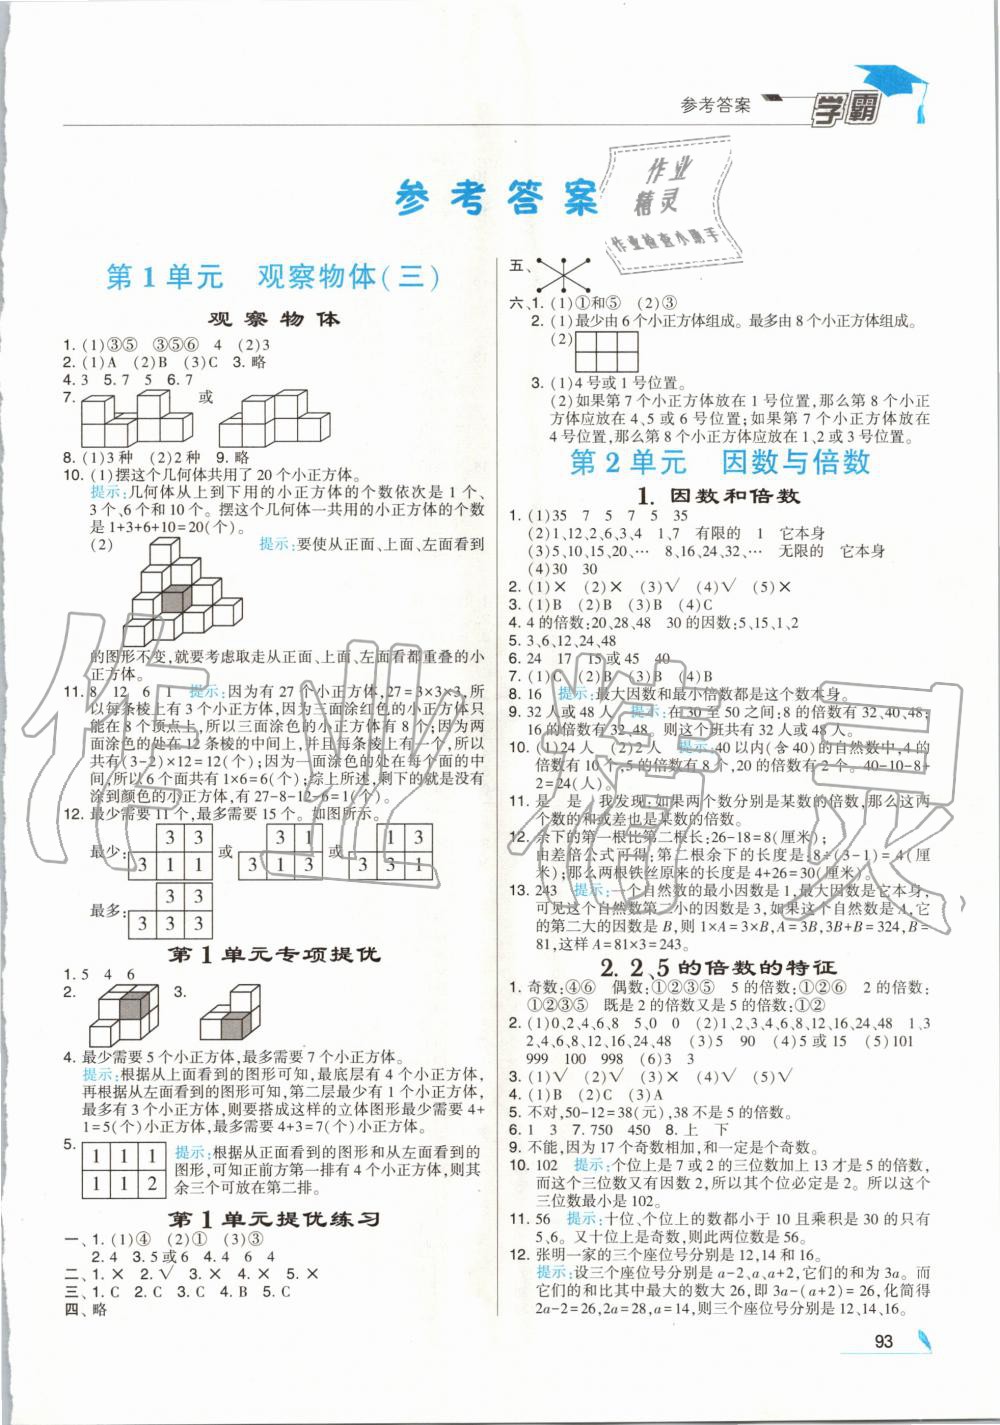 参考答案 学霸
作业
精灵
作业检查小助手
参考答案
第1单元 观察物体(三)
观察物体
1. (1)③⑤ ③⑤⑥ 4 (2)3
2. (1)A (2)B (3)C 3. 略
4. 3 5. 7 5 6. 7
7. 或
8. (1)3种 (2)2种 9. 略
10. (1)摆这个几何体共用了20个小正方体。
提示:几何体从上到下用的小正方体的个数依次是1个、
3个、6个和10个。摆这个几何体一共用的小正方体的个数
是1+3+6+10=20(个)。
(2) 提示:要使从正面、上面、左面看到
的图形不变,就要考虑取走从正面、上面、左面看都重叠的小
正方体。
11. 8 12 6 1 提示:因为有27个小正方体,27=3×3×3,所
以每条棱上有3个小正方体,因为三面涂色的小正方体只
能在8个顶点上,所以三面涂色的小正方体有8个;因为两
面涂色的处在12条棱的中间上,并且每条棱上有一个,所以
共有(3-2)×12=12(个);因为一面涂色的处在每个面的中
间,所以6个面共有1×6=6(个);综上所述,剩下的就是没有
涂到颜色的小正方体,有27-8-12-6=1(个)。
12. 最少需要11个,最多需要15个。如图所示。
最少: 3 3 或 3 1 或 1 3
3 1 1 3 1 3 3 3 1
最多: 3 3
3 3 3
第1单元专项提优
1. 5 4 6
2. 3.
4. 最少需要5个小正方体,最多需要7个小正方体。
提示:根据从上面看到的图形可知,最底层有4个小正方体,
再根据从左面看到的图形可知,第二层最少有1个小正方体,
最多有3个小正方体,则要搭成这样的立体图形最少需要4+
1=5(个)小正方体,最多需要4+3=7(个)小正方体。
5. 1 1 1
1 1 2
提示:根据从正面看到的图形和从左面看到的
图形,可知正前方第一排有4个小正方体,则其
余三个可放在第二排。
第1单元提优练习
一、1. (1)④ (2)① (3)③
2. 4 3. 5或6 4. 4 6 4
二、1. × 2. √ 3. × 4. × 5. ×
三、1. C 2. C 3. C 4. B 5. C
四、略
五、
六、1. (1)①和⑤ (2)③
2. (1)最少由6个小正方体组成。最多由8个小正方体组成。
(2)
3. (1)4号或1号位置。
(2)如果第7个小正方体放在1号位置,那么第8个小正
方体应放在4、5或6号位置;如果第7个小正方体放在
4号位置,那么第8个小正方体应放在1、2或3号位置。
第2单元 因数与倍数
1. 因数和倍数
1. (1)35 7 5 7 5 35
(2)1,12,2,6,3,4 1、7 有限的 1 它本身
(3)5,10,15,20,… 8,16,24,32,… 无限的 它本身
(4)30 30
2. (1)× (2)× (3)√ (4)√ (5)×
3. (1)B (2)B (3)B (4)C
4. 4的倍数:20、28、48 30的因数:5、15、1、2
5. 3,6,12,24,48
6. 24 17 15或45 40
7. (1)C (2)B (3)B (4)B
8. 16 提示:最大因数和最小倍数都是这个数本身。
9. 32人或48人 提示:在30至50之间:8的倍数有32、40、48;
16的倍数有32、48,则这个班共有32人或48人。
10. (1)24人 (2)2人 提示:40以内(含40)的自然数中,4的
倍数有10个,5的倍数有8个,20的倍数有2个。40-10-8+
2=24(人)。
11. 是 是 我发现:如果两个数分别是某数的倍数,那么这两
个数的和或差也是某数的倍数。
12. 余下的第一根比第二根长:26-18=8(厘米);
由差倍公式可得:第二根余下的长度是:8÷(3-1)=4(厘
米);那么两根铁丝原来的长度是4+26=30(厘米)。
13. 243 提示:一个自然数的最小因数是1,最大因数是它本身,
可见这个自然数第二小的因数是3,如果这个自然数是A,它
的第二大的因数是B,则1×A=3×B,A=3B,3B+B=324,B=
81,这样A=81×3=243。
2. 2、5的倍数的特征
1. 奇数:④⑥ 偶数:①②③⑤ 5的倍数:①②⑥ 2的倍数:
①②③⑤ 既是2的倍数又是5的倍数:①②
2. (1)0、2、4、6、8 5、0 0 (2)1,2,3,4,6,8,12,16,24,48 1、3
2,4,6,8,12,16,24,48 (3)5 90 (4)5或15 (5)101
999 100 998 (6)3 3
3. (1)√ (2)√ (3)× (4)√ (5)√
4. (1)B (2)C (3)A (4)C
5. 不对,50-12=38(元),38不是5的倍数。
6. 1 3 7. 750 450 8. 上 下
9. 不能,因为17个奇数相加,和一定是个奇数。
10. 102 提示:个位上是7或2的三位数加上13才是5的倍数,
而这个三位数又有因数2,所以其个位必定是2。所以这个
三位数最小是102。
11. 56 提示:十位、个位上的数都小于10且乘积是30的只有
5、6。又十位上是奇数,则此两位数是56。
12. 张明一家的三个座位号分别是12,14和16。
提示:设三个座位号分别是a-2、a、a+2,它们的和为3a。而
它们的和比其中最大的数大26,即3a-(a+2)=26,化简得
2a-2=26,2a=28,a=14,则三个座位号分别是12、14、16。
93
作业精灵